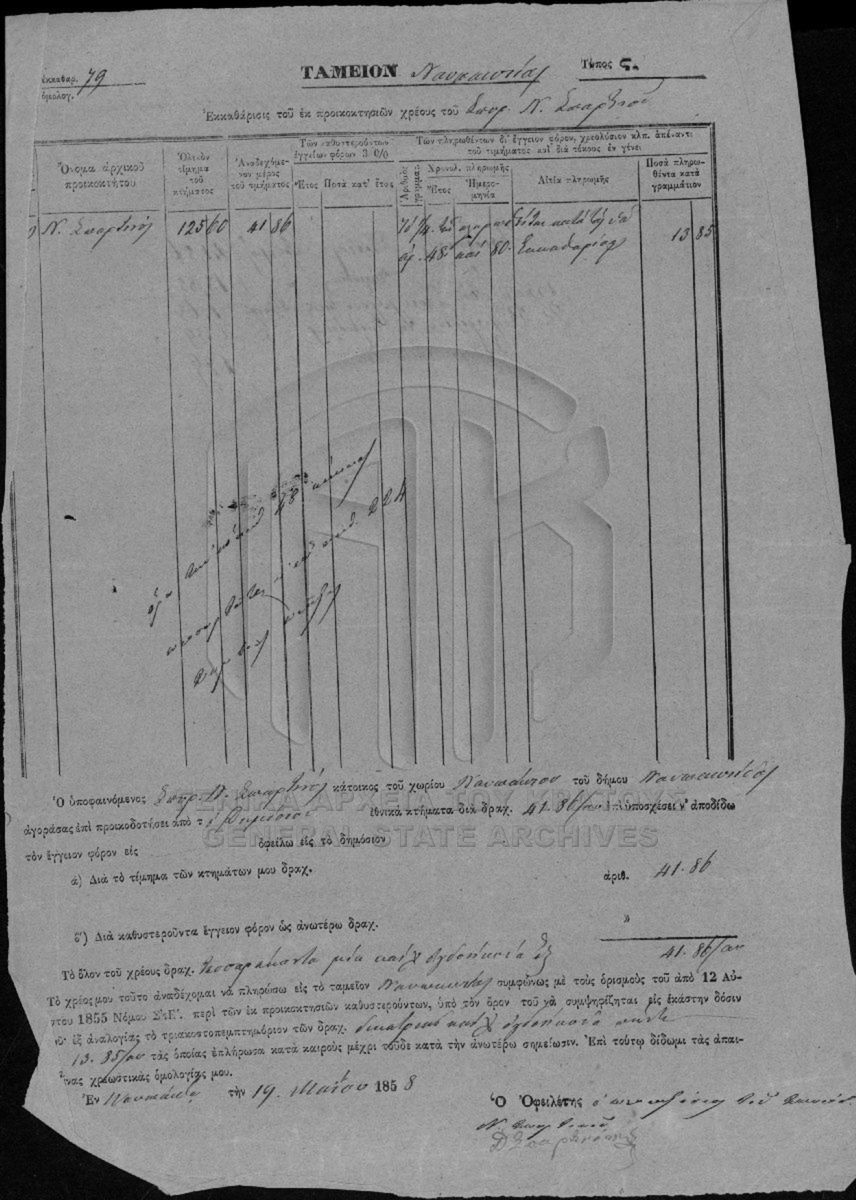 ἐκκαθαρ. 79
ὁμολογ.
ΤΑΜΕΙΟΝ Ναυπακτίας
Τύπος ς.
Ἐκκαθάρισις τοῦ ἐκ προικοκτησιῶν χρέους τοῦ Σπυρ. Ν. Σπαρτινοῦ
Ὄνομα ἀρχικοῦ προικοκτήτου
Ὁλικὸν τίμημα τοῦ κτήματος
Ἀναδεχόμενον μέρος τοῦ τιμήματος
Τῶν καθυστερούντων ἐγγείων φόρων 3 0/0
Ἔτος
Ποσὰ κατ' ἔτος
Τῶν πληρωθέντων δι' ἔγγειον φόρον, χρεολύσιον κλπ. ἀπέναντι
τοῦ τιμήματος καὶ διὰ τόκους ἐν γένει
Ἀριθμὸς γραμματ.
Χρονολ. πληρωμῆς
Ἔτος
Ἡμερομηνία
Αἰτία πληρωμῆς
Ποσὰ πληρωθέντα κατὰ γραμμάτιον
Ν. Σπαρτινός 125 60 41 86 13 85
48 καὶ 80. Ἐκκαθαρίσεις
Ὁ ὑποφαινόμενος Σπυρ. Ν. Σπαρτινός κάτοικος τοῦ χωρίου Ναυπάκτου τοῦ δήμου Ναυπακτίας
ἀγοράσας ἐπὶ προικοδοτήσει ἀπὸ τ Δημόσιον ἐθνικὰ κτήματα διὰ δραχ. 41.86 ἐπὶ ὑποσχέσει ν' ἀποδίδω
τὸν ἔγγειον φόρον εἰς ὀφείλω εἰς τὸ δημόσιον
ά) Διὰ τὸ τίμημα τῶν κτημάτων μου δραχ. ἀριθ. 41.86
β') Διὰ καθυστεροῦντα ἔγγειον φόρον ὡς ἀνωτέρω δραχ. »
Τὸ ὅλον τοῦ χρέους δραχ. τεσσαράκοντα μία καὶ ὀγδοήκοντα ἓξ 41.86
Τὸ χρέος μου τοῦτο ἀναδέχομαι νὰ πληρώσω εἰς τὸ ταμεῖον Ναυπακτίας συμφώνως μὲ τοὺς ὁρισμοὺς τοῦ ἀπὸ 12 Αὐ-
γούστου 1855 Νόμου ΣτΕ'. περὶ τῶν ἐκ προικοκτησιῶν καθυστερούντων, ὑπὸ τὸν ὅρον τοῦ νὰ συμψηφίζηται εἰς ἑκάστην δόσιν
ἐξ ἀναλογίας τὸ τριακοστοπεμπτημόριον τῶν δραχ. δεκατρεῖς καὶ ὀγδοήκοντα πέντε
13.85 τὰς ὁποίας ἐπλήρωσα κατὰ καιροὺς μέχρι τοῦδε κατὰ τὴν ἀνωτέρω σημείωσιν. Ἐπὶ τούτῳ δίδωμι τὰς ἀπαι-
χρεωστικὰς ὁμολογίας μου.
Ἐν Ναυπάκτῳ τὴν 19 Μαΐου 1858
Ὁ Ὀφειλέτης
ΓΕΝΙΚΑ ΑΡΧΕΙΑ ΤΟΥ ΚΡΑΤΟΥΣ
GENERAL STATE ARCHIVES